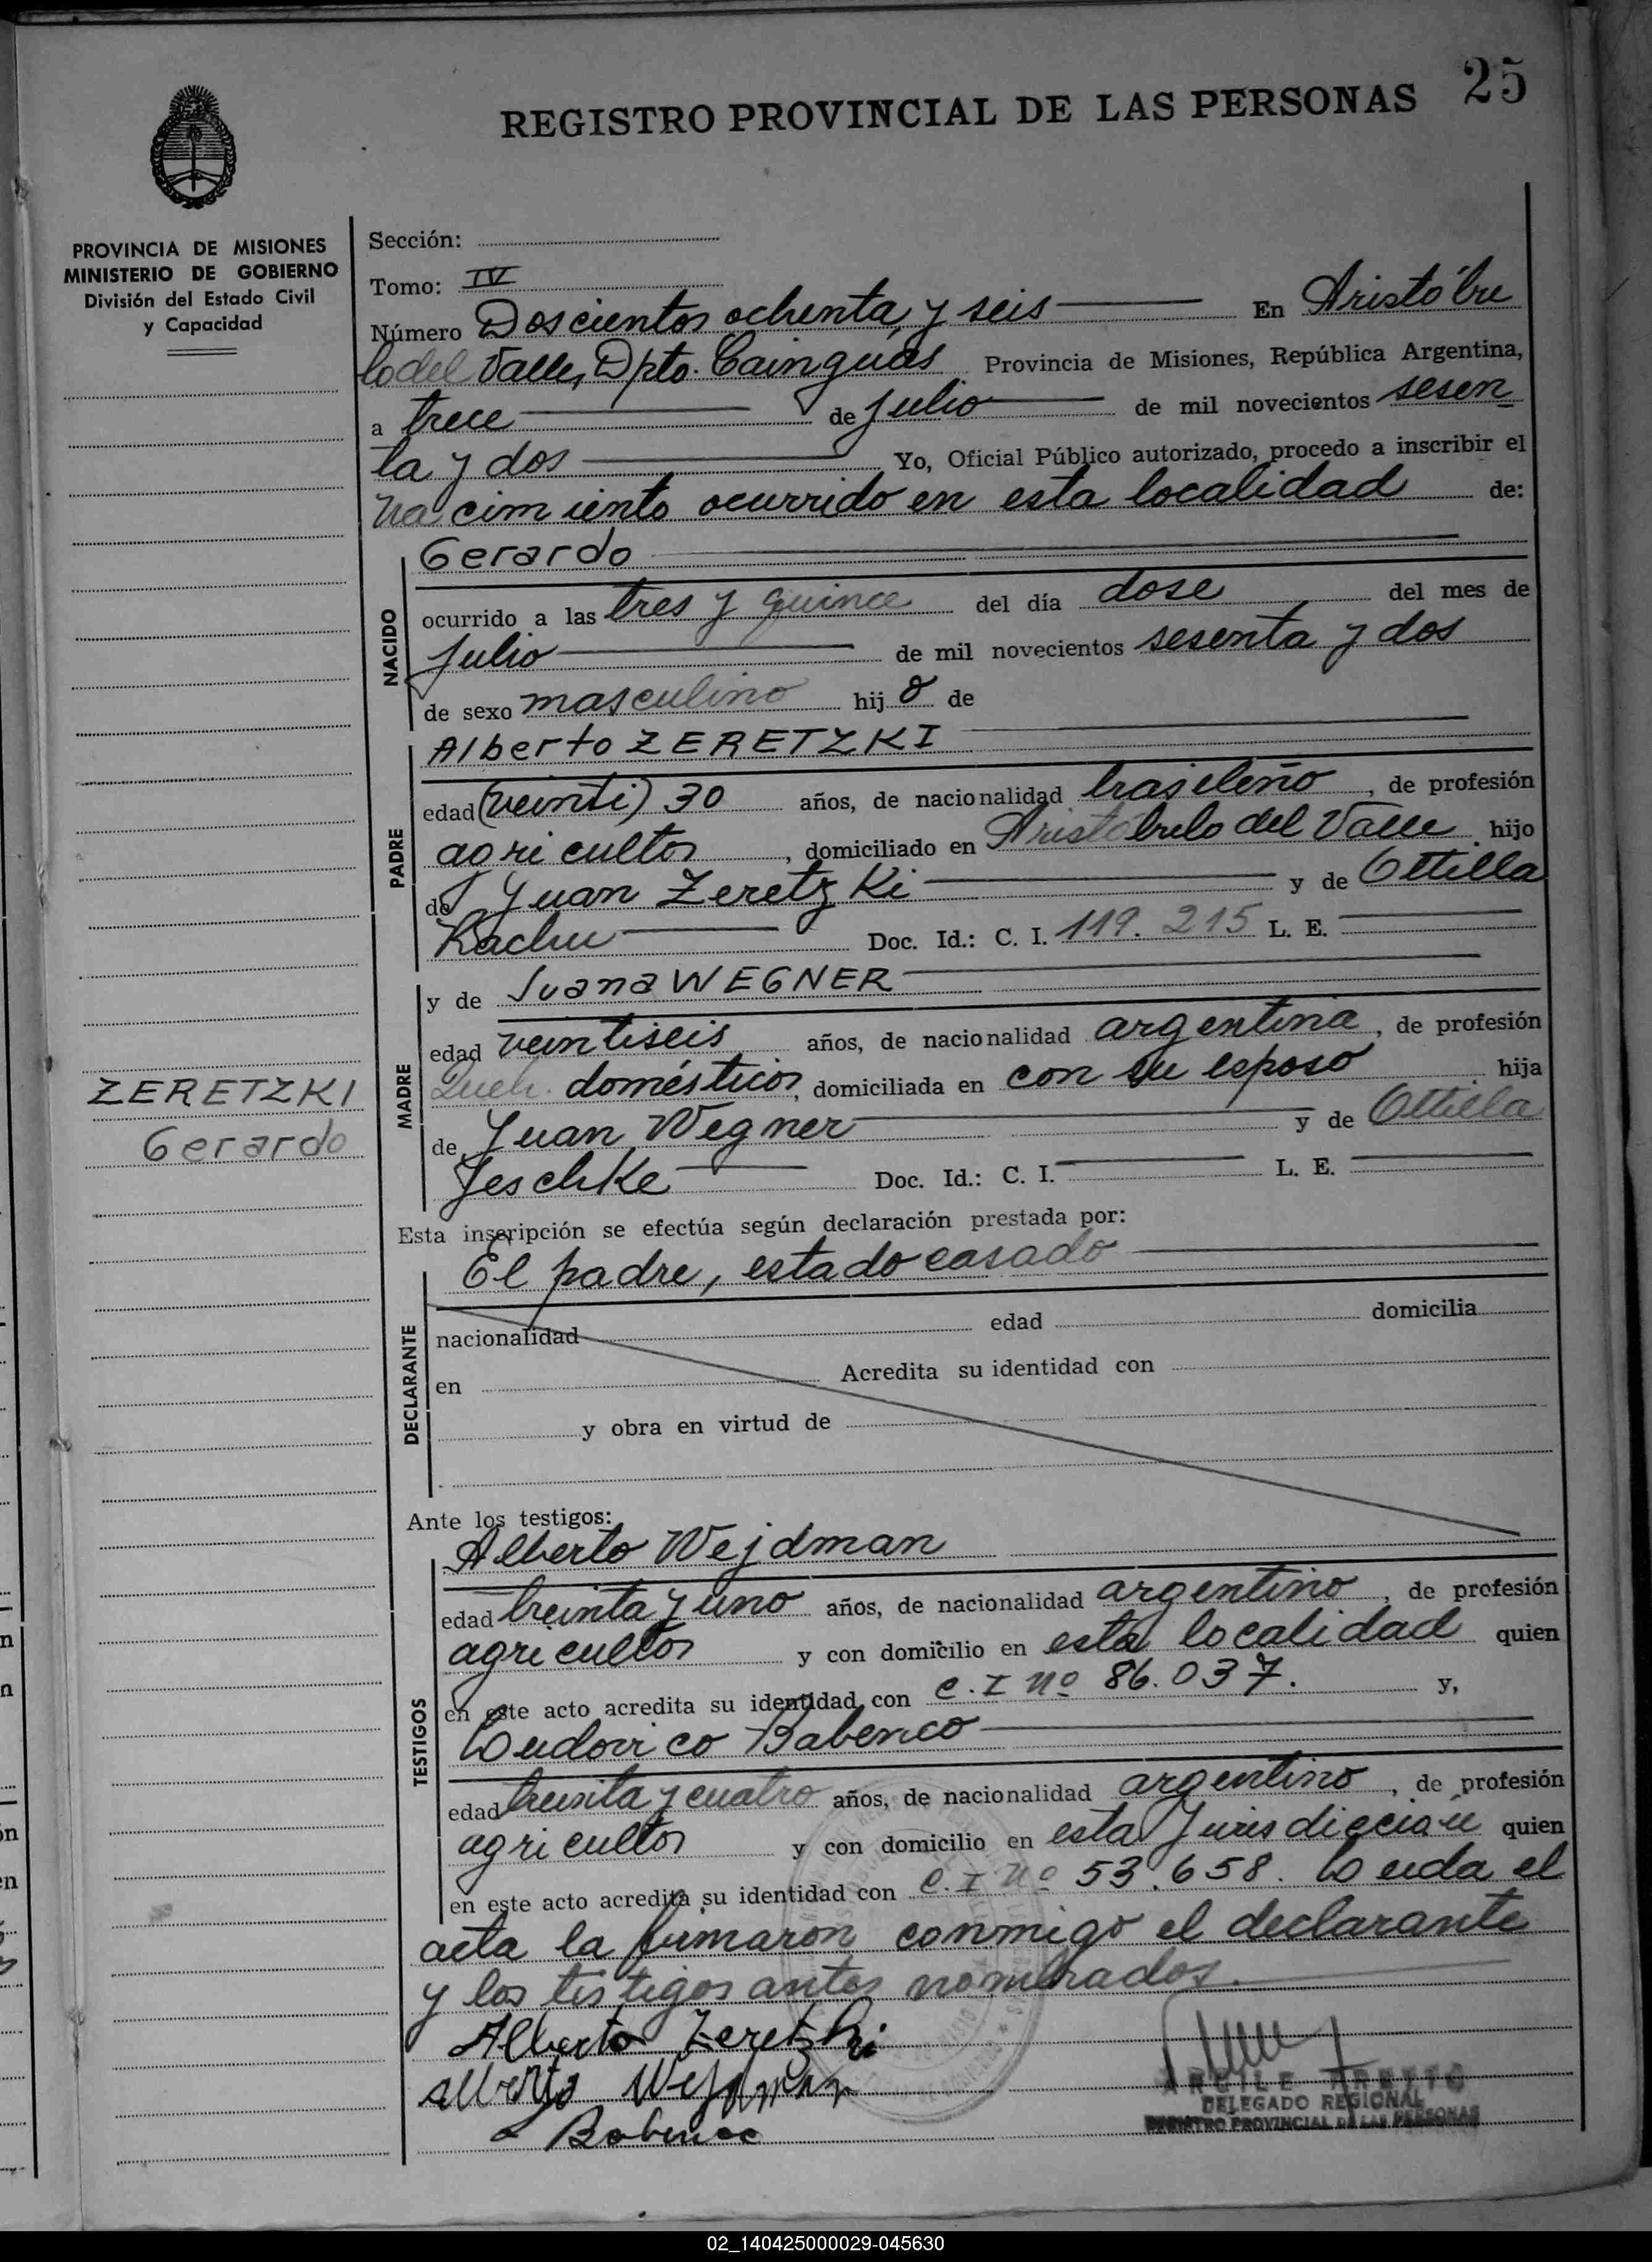 25
REGISTRO PROVINCIAL DE LAS PERSONAS
PROVINCIA DE MISIONES
MINISTERIO DE GOBIERNO
División del Estado Civil
y Capacidad
Sección:
Tomo: IV
Número Doscientos ochenta y seis En Aristóbu
lo del Valle, Dpto. Cainguás Provincia de Misiones, República Argentina,
a trece de Julio de mil novecientos sesen
ta y dos Yo, Oficial Público autorizado, procedo a inscribir el
nacimiento ocurrido en esta localidad de:
NACIDO
Gerardo
ocurrido a las tres y quince del día dose del mes de
Julio de mil novecientos sesenta y dos
de sexo masculino hijo de
PADRE
Alberto ZERETZKI
edad (veinti) 30 años, de nacionalidad brasileño, de profesión
agricultor, domiciliado en Aristóbulo del Valle hijo
de Juan Zeretzki y de Ottilla
Doc. Id.: C. I. 119.215 L. E.
MADRE
y de Juana WEGNER
edad veintiseis años, de nacionalidad argentina, de profesión
Queh. domésticos, domiciliada en con su esposo hija
de Juan Wegner y de Ottilla
Jeschke Doc. Id.: C. I. L. E.
ZERETZKI
Gerardo
Esta inscripción se efectúa según declaración prestada por:
DECLARANTE
El padre, estado casado
nacionalidad edad domicilia
en Acredita su identidad con
y obra en virtud de
Ante los testigos:
TESTIGOS
Alberto Wejdman
edad treinta y uno años, de nacionalidad argentino, de profesión
agricultor y con domicilio en esta localidad quien
en este acto acredita su identidad con C. I nº 86.037. y,
Ludovico Babenco
edad treinta y cuatro años, de nacionalidad argentino, de profesión
agricultor y con domicilio en esta Jurisdicción quien
en este acto acredita su identidad con C. I nº 53.658. Leida el
acta la firmaron conmigo el declarante
y los testigos antes nombrados.
Alberto Zeretzki
Alberto Wejdman
DELEGADO REGIONAL
REGISTRO PROVINCIAL DE LAS PERSONAS
02_140425000029-045630